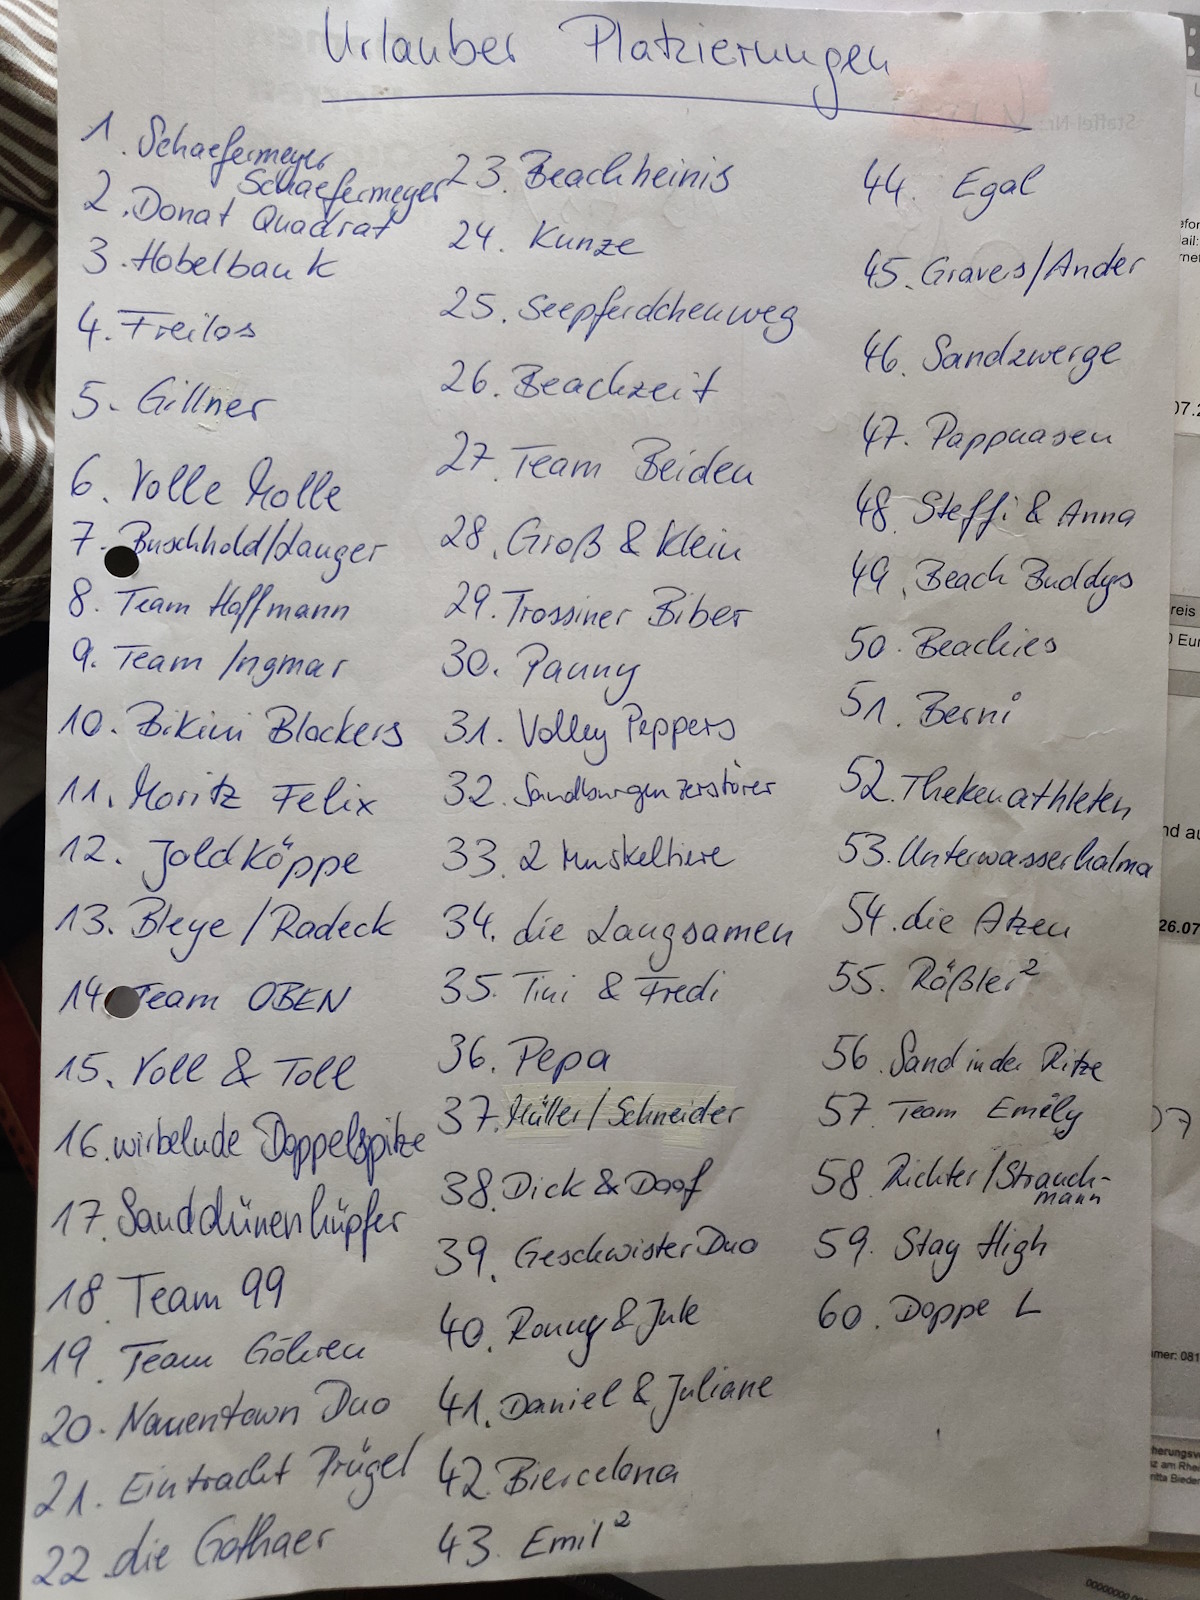 Urlauber Platzierungen
1. Schaefermeyer
Schaefermeyer
2. Donat Quadrat
3. Hobelbank
4. Freilos
5. Gillner
6. Volle Molle
7. Buschhold/Langer
8. Team Hoffmann
9. Team Ingmar
10. Bikini Blockers
11. Moritz Felix
12. Joldköppe
13. Bleye/Radeck
14. Team OBEN
15. Voll & Toll
16. wirbelnde Doppelspitze
17. Sanddünenhüpfer
18. Team 99
19. Team Göhren
20. Nauentown Duo
21. Eintracht Prügel
22. die Gothaer
23. Beachheinis
24. Kunze
25. Seepferdchenweg
26. Beachzeit
27. Team Beiden
28. Groß & Klein
29. Trossiner Biber
30. Panny
31. Volley Peppers
32. Sandburgenzerstörer
33. 2 Muskeltiere
34. die Langsamen
35. Tini & Fredi
36. Pepa
37. Müller/Schneider
38. Dick & Doof
39. Geschwister Duo
40. Ronny & Jule
41. Daniel & Juliane
42. Biercelona
43. Emil²
44. Egal
45. Gravers/Ander
46. Sandzwerge
47. Pappnasen
48. Steffi & Anna
49. Beach Buddys
50. Beachies
51. Berni
52. Thekenathleten
53. Unterwasserhalma
54. die Atzen
55. Rößler²
56. Sand in der Ritze
57. Team Emely
58. Richter/Strauch-
mann
59. Stay High
60. Doppel L
Staffel-Nr.:
26.07